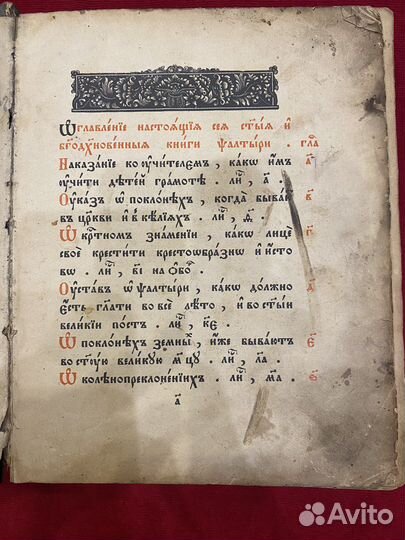 Ѡ҆главле́нїе настоѧ́щїѧ сеѧ̀ ст҃ы́ѧ и҆
бг҃одхнове́нныѧ кни́ги ѱалты́ри . гла̀
Наказа́нїе ко ᲂу҆чи́телємъ , ка́кѡ и҆́мъ а҃
ᲂу҆чи́ти дѣте́й гра́мотѣ . ли́ , а҃ .
Оу҆ка́зъ ѡ҆ покло́нѣхъ , когда̀ быва́ в҃
въ цр҃кви и҆ в ке́лїѧхъ . ли́ ,
Ѡ҆ кр҃тномъ зна́менїи , ка́кѡ лицѐ г҃
своѐ крести́ти крⷭ҇тоѡбра́знѡ и҆ и҆́сто
вѡ . ли́ , в҃і на ѡ҆бо́ .
Оу҆ста́въ ѡ҆ ѱалты́ри , ка́кѡ до́лжно д҃
є҆́сть гл҃ати во всѐ лѣ́то , и҆ во ст҃ы́и
вели́кїи по́стъ . ли́ , к҃є .
Ѡ҆ покло́нѣхъ земны́ , и҆́же быва́ютъ є҃
во ст҃ꙋ́ю вели́кꙋю м҃цꙋ . ли́ , л҃а .
Ѡ҆ колѣнопреклоне́нїихъ . ли́ , м҃а . ѕ҃
а҃
Avito